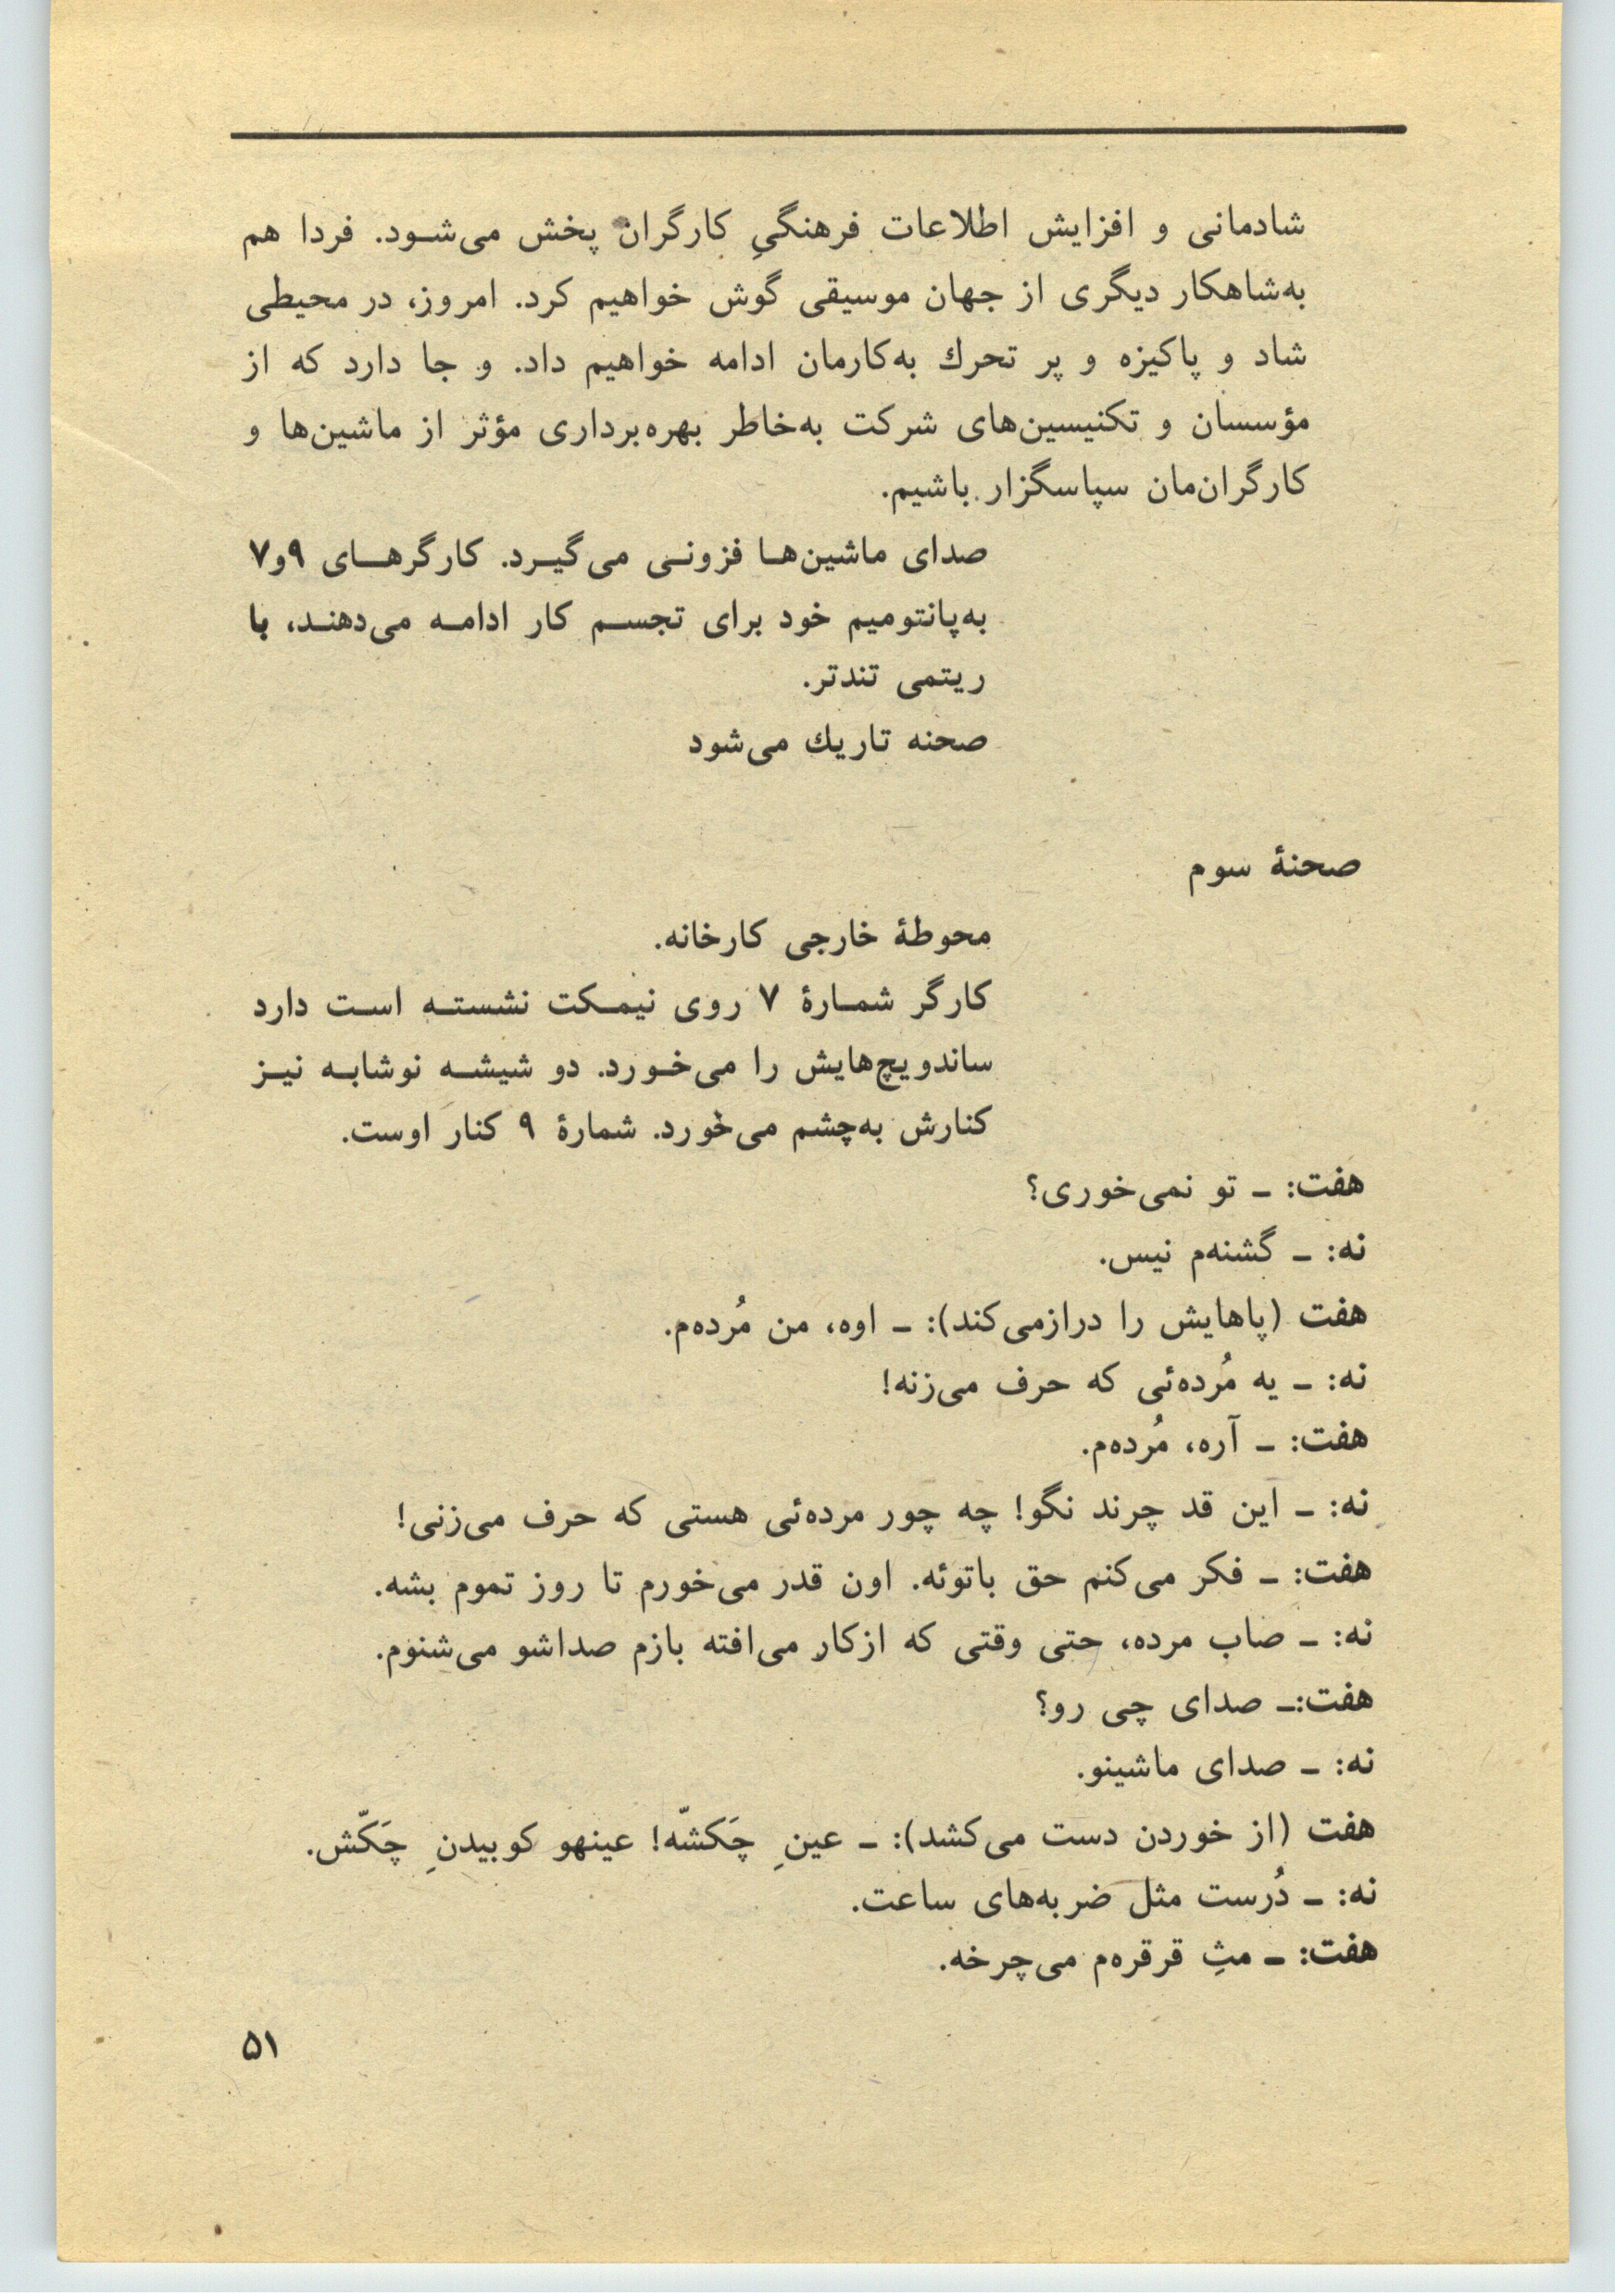 شادمانی و افزایش اطلاعات فرهنگیِ کارگران پخش می‌شود. فردا هم
به‌شاهکار دیگری از جهان موسیقی گوش خواهیم کرد. امروز، در محیطی
شاد و پاکیزه و پر تحرك به‌کارمان ادامه خواهیم داد. و جا دارد که از
مؤسسان و تکنیسین‌های شرکت به‌خاطر بهره‌برداری مؤثر از ماشین‌ها و
کارگران‌مان سپاسگزار باشیم.
صدای ماشین‌ها فزونی می‌گیرد. کارگرهای ۹و۷
به‌پانتومیم خود برای تجسم کار ادامه می‌دهند، با
ریتمی تندتر.
صحنه تاریك می‌شود
صحنهٔ سوم
محوطهٔ خارجی کارخانه.
کارگر شمارهٔ ۷ روی نیمکت نشسته است دارد
ساندویچ‌هایش را می‌خورد. دو شیشه نوشابه نیز
کنارش به‌چشم می‌خورد. شمارهٔ ۹ کنار اوست.
هفت: ـ تو نمی‌خوری؟
نه: ـ گشنه‌م نیس.
هفت (پاهایش را درازمی‌کند): ـ اوه، من مُرده‌م.
نه: ـ یه مُرده‌ئی که حرف می‌زنه!
هفت: ـ آره، مُرده‌م.
نه: ـ این قد چرند نگو! چه چور مرده‌ئی هستی که حرف می‌زنی!
هفت: ـ فکر می‌کنم حق باتوئه. اون قدر می‌خورم تا روز تموم بشه.
نه: ـ صاب مرده، حتی وقتی که ازکار می‌افته بازم صداشو می‌شنوم.
هفت:ـ صدای چی رو؟
نه: ـ صدای ماشینو.
هفت (از خوردن دست می‌کشد): ـ عینِ چَکشّه! عینهو کوبیدنِ چَکّش.
نه: ـ دُرست مثل ضربه‌های ساعت.
هفت: ـ مثِ قرقره‌م می‌چرخه.
۵۱